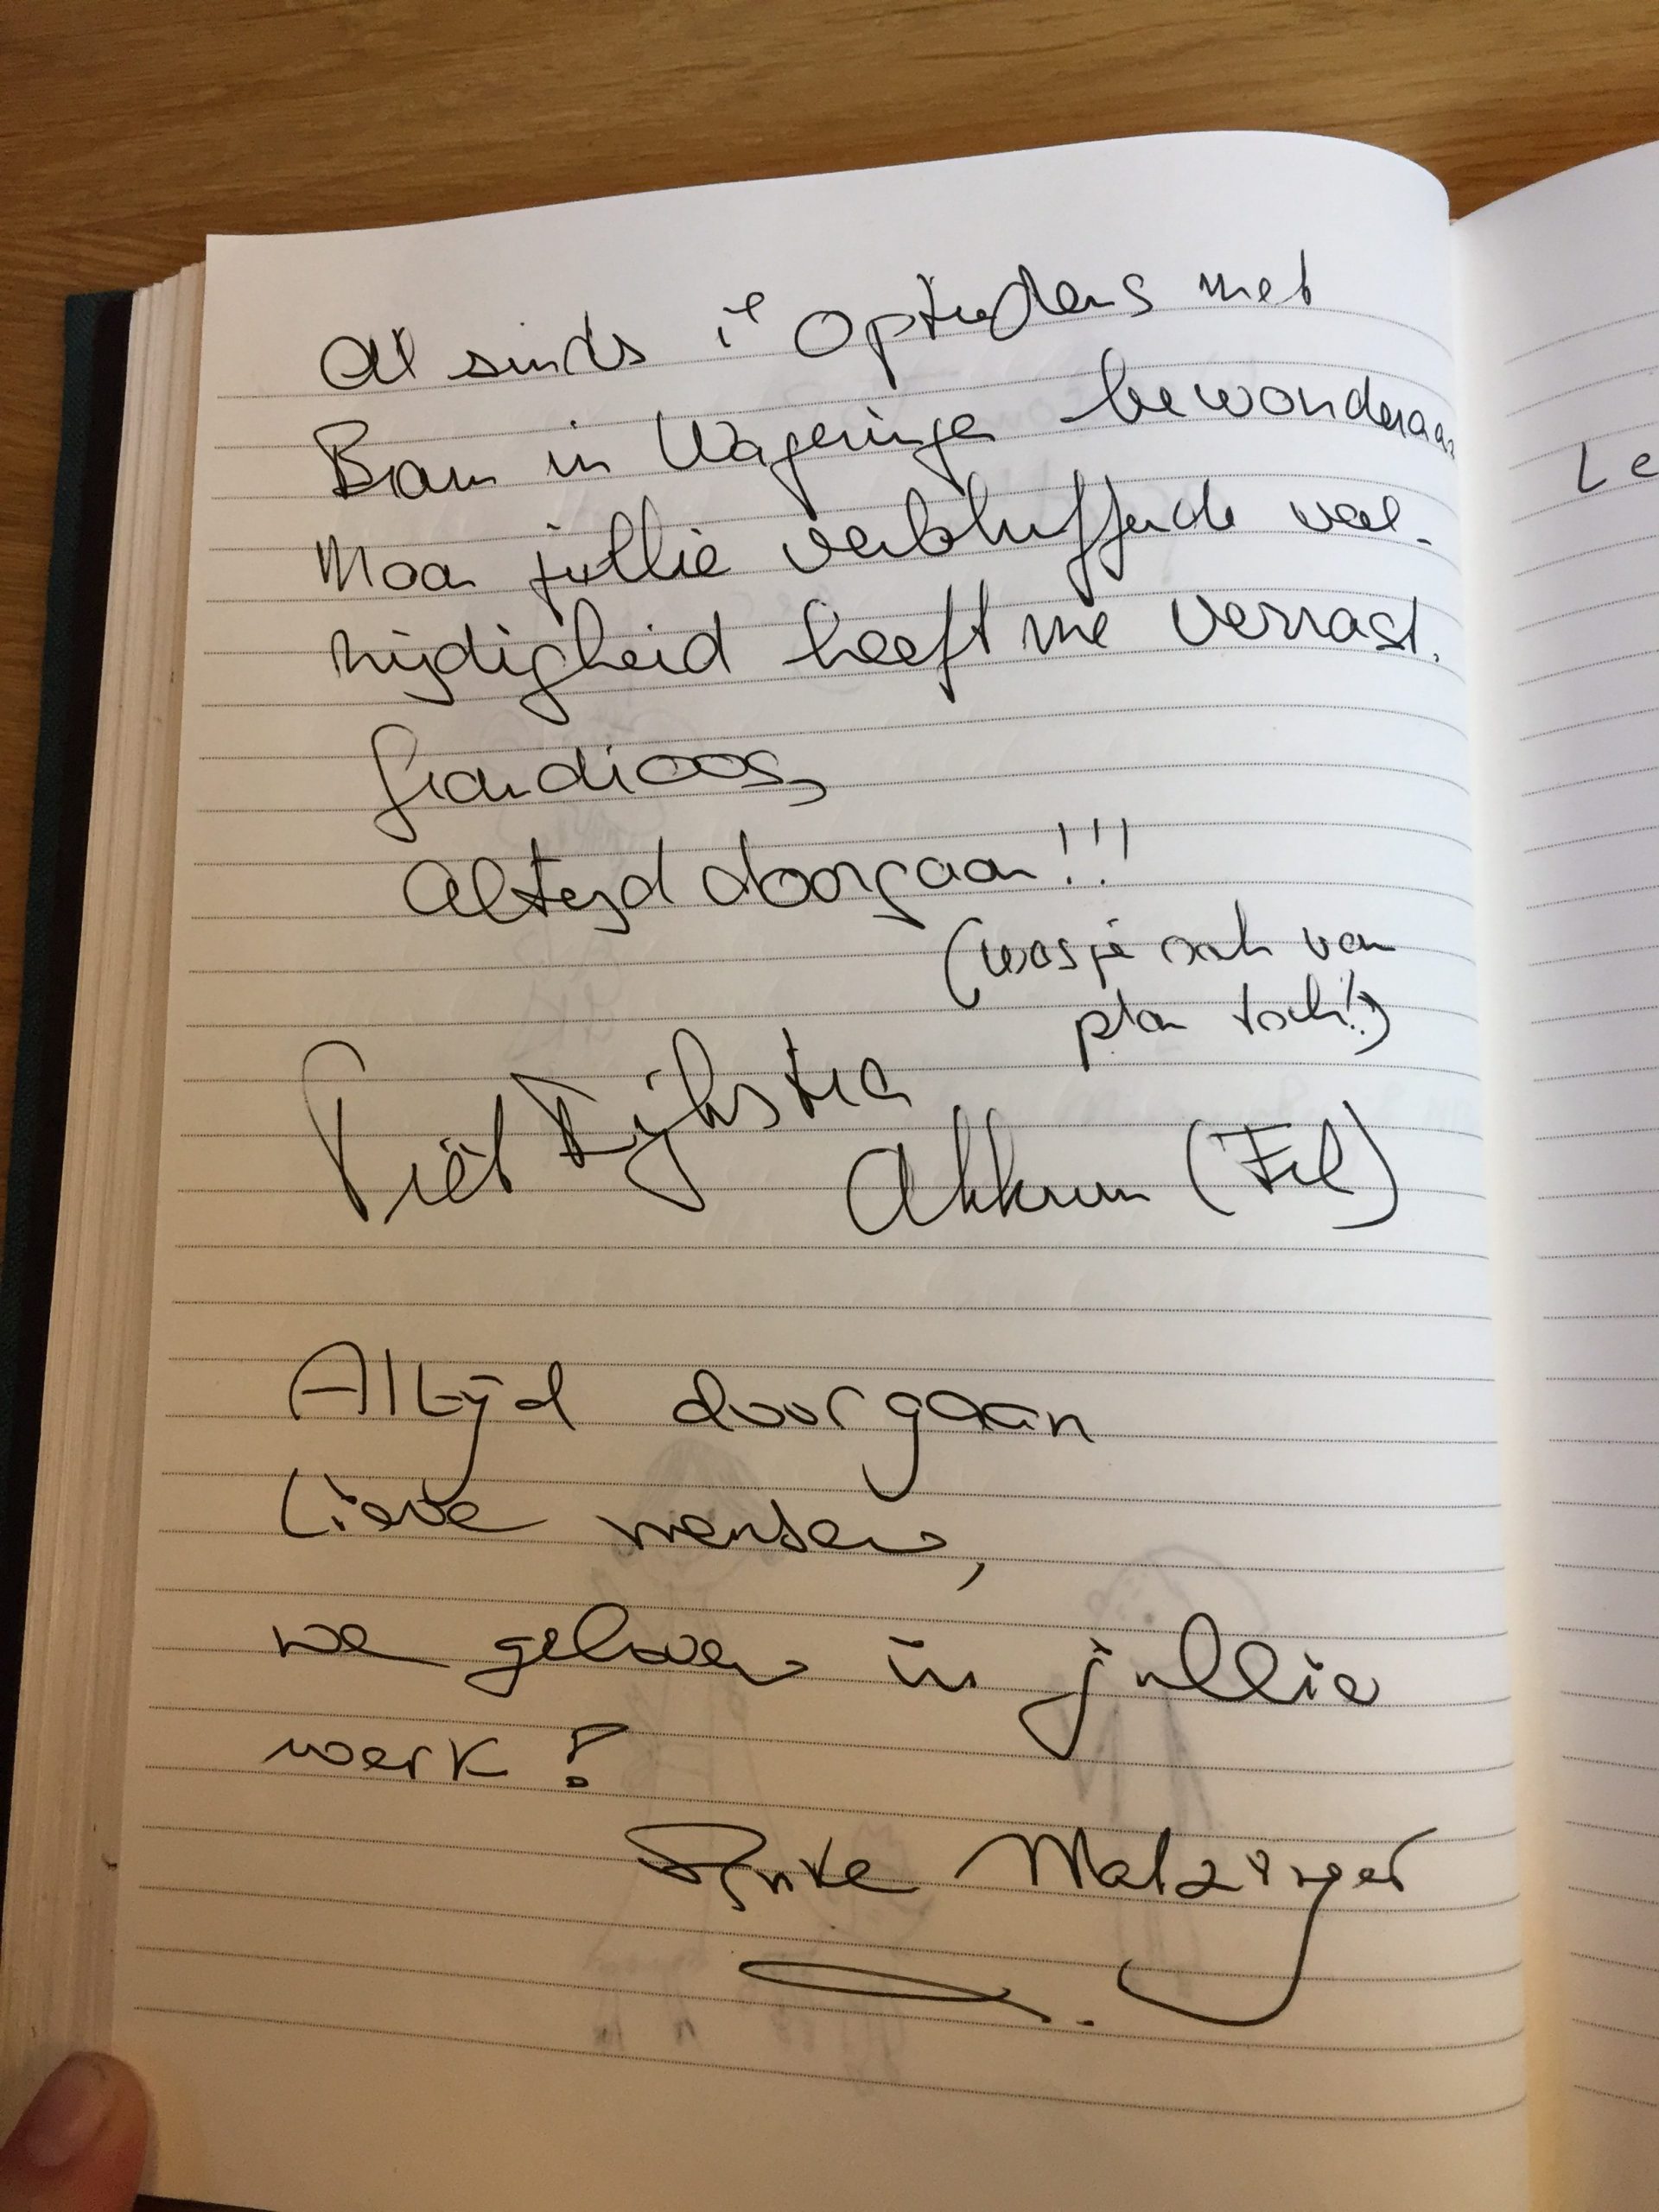 Al sinds 1e optredens met
Bram in Wageningen bewonderaar
Maar jullie verbluffende veel-
zijdigheid heeft me verrast.
Grandioos,
Altijd doorgaan!!!
(was je ook van
plan toch!)
Piet Dijkstra
Akkrum (Frl)
Altijd doorgaan
Lieve mensen,
we geloven in jullie
werk!
Anke Matzinger
Le